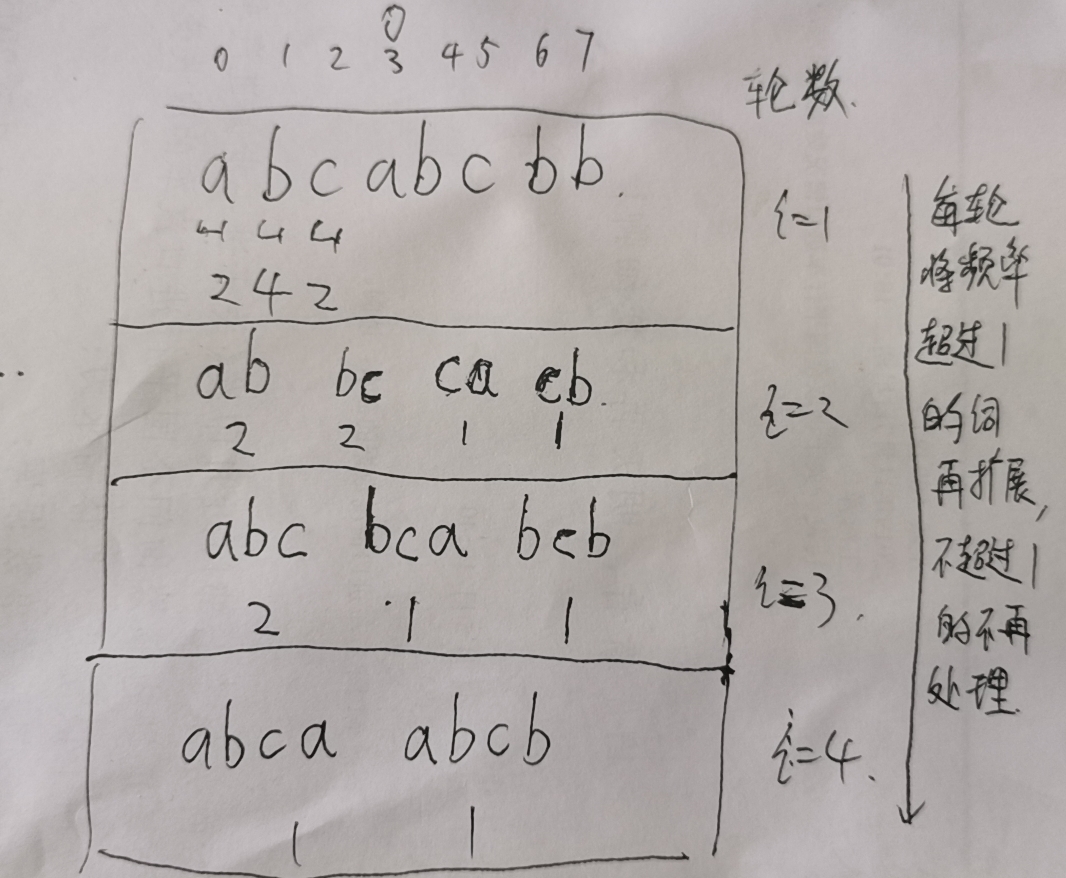 0
0 1 2 3 4 5 6 7
轮数.
a b c a b c b b.
4 4 4
2 4 2
i=1
ab bc ca cb.
2 2 1 1
i=2
abc bca bcb
2 1 1
i=3.
abca abcb
1 1
i=4.
每轮
将频率
超过1
的词
再扩展,
不超过1
的不再
处理.